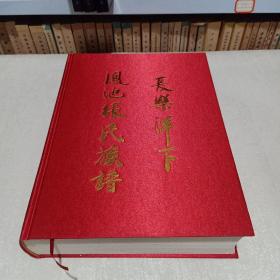 長樂潭下
鳳池張氏族譜